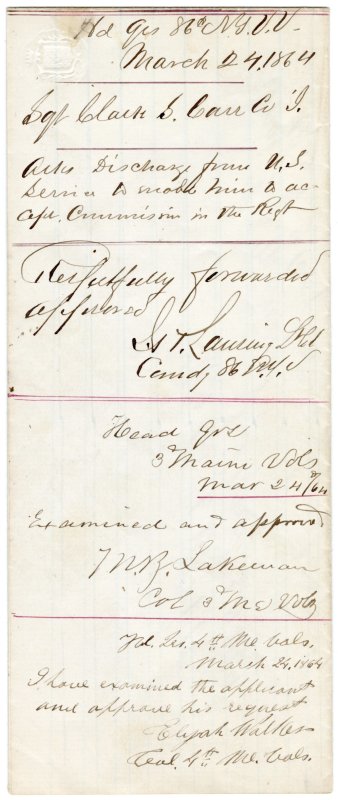 Hd Qrs 86th N.Y.V.V.
March 24, 1864
Sgt Clark S. Carr Co I.
Asks Discharge from U.S.
Service to enable him to ac-
cept Commission in the Regt
Respectfully forwarded
approved
Lansing
Comdg 86 N.Y.V
Head Qrs
3d Maine Vols
Mar 24th/64
Examined and approved
M.B. Lakeman
Col 3d Me Vols
Hd. Qrs. 4th Me. Vols.
March 24, 1864
I have examined the applicant
and approve his request
Elijah Walker
Col. 4th Me. Vols.